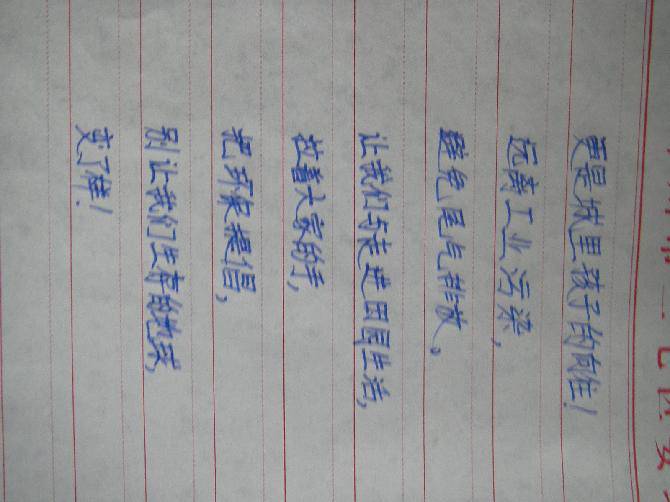 更是城里孩子的向往！
远离工业污染，
避免尾气排放。
让我们走进田园生活，
拉着大家的手，
把环保提倡，
别让我们生存的地球，
变了样！